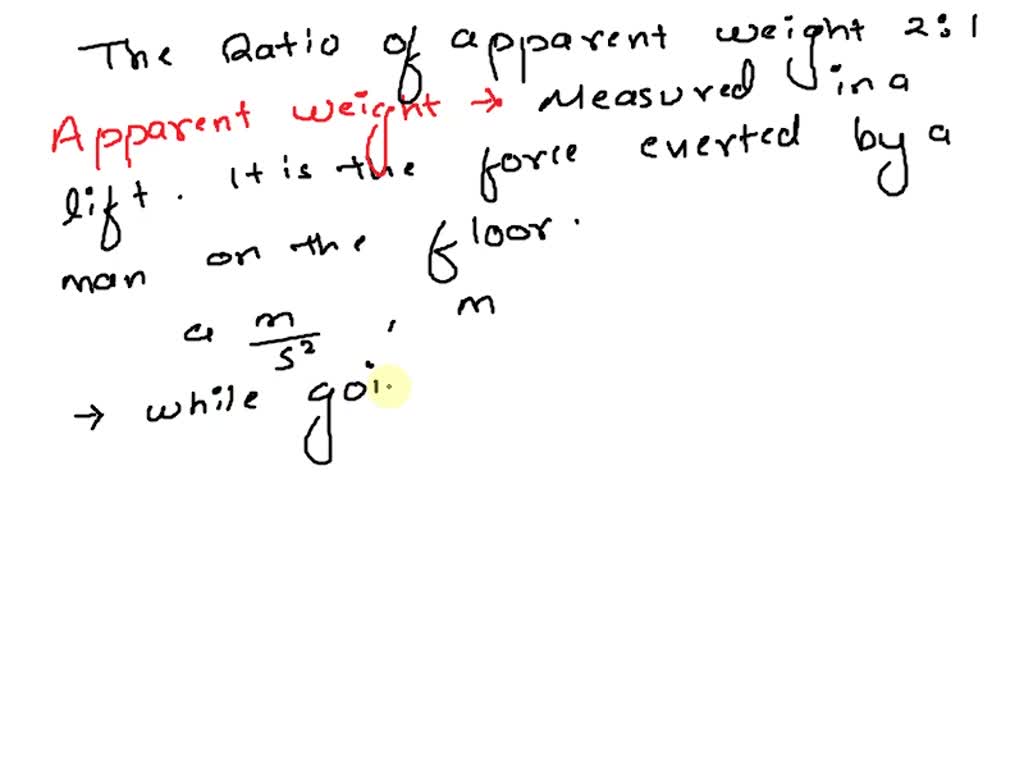 The Ratio of apparent weight 2:1
Apparent weight → Measured in a
lift. It is the force exerted by a
man on the floor.
a m/s², m
→ while goi